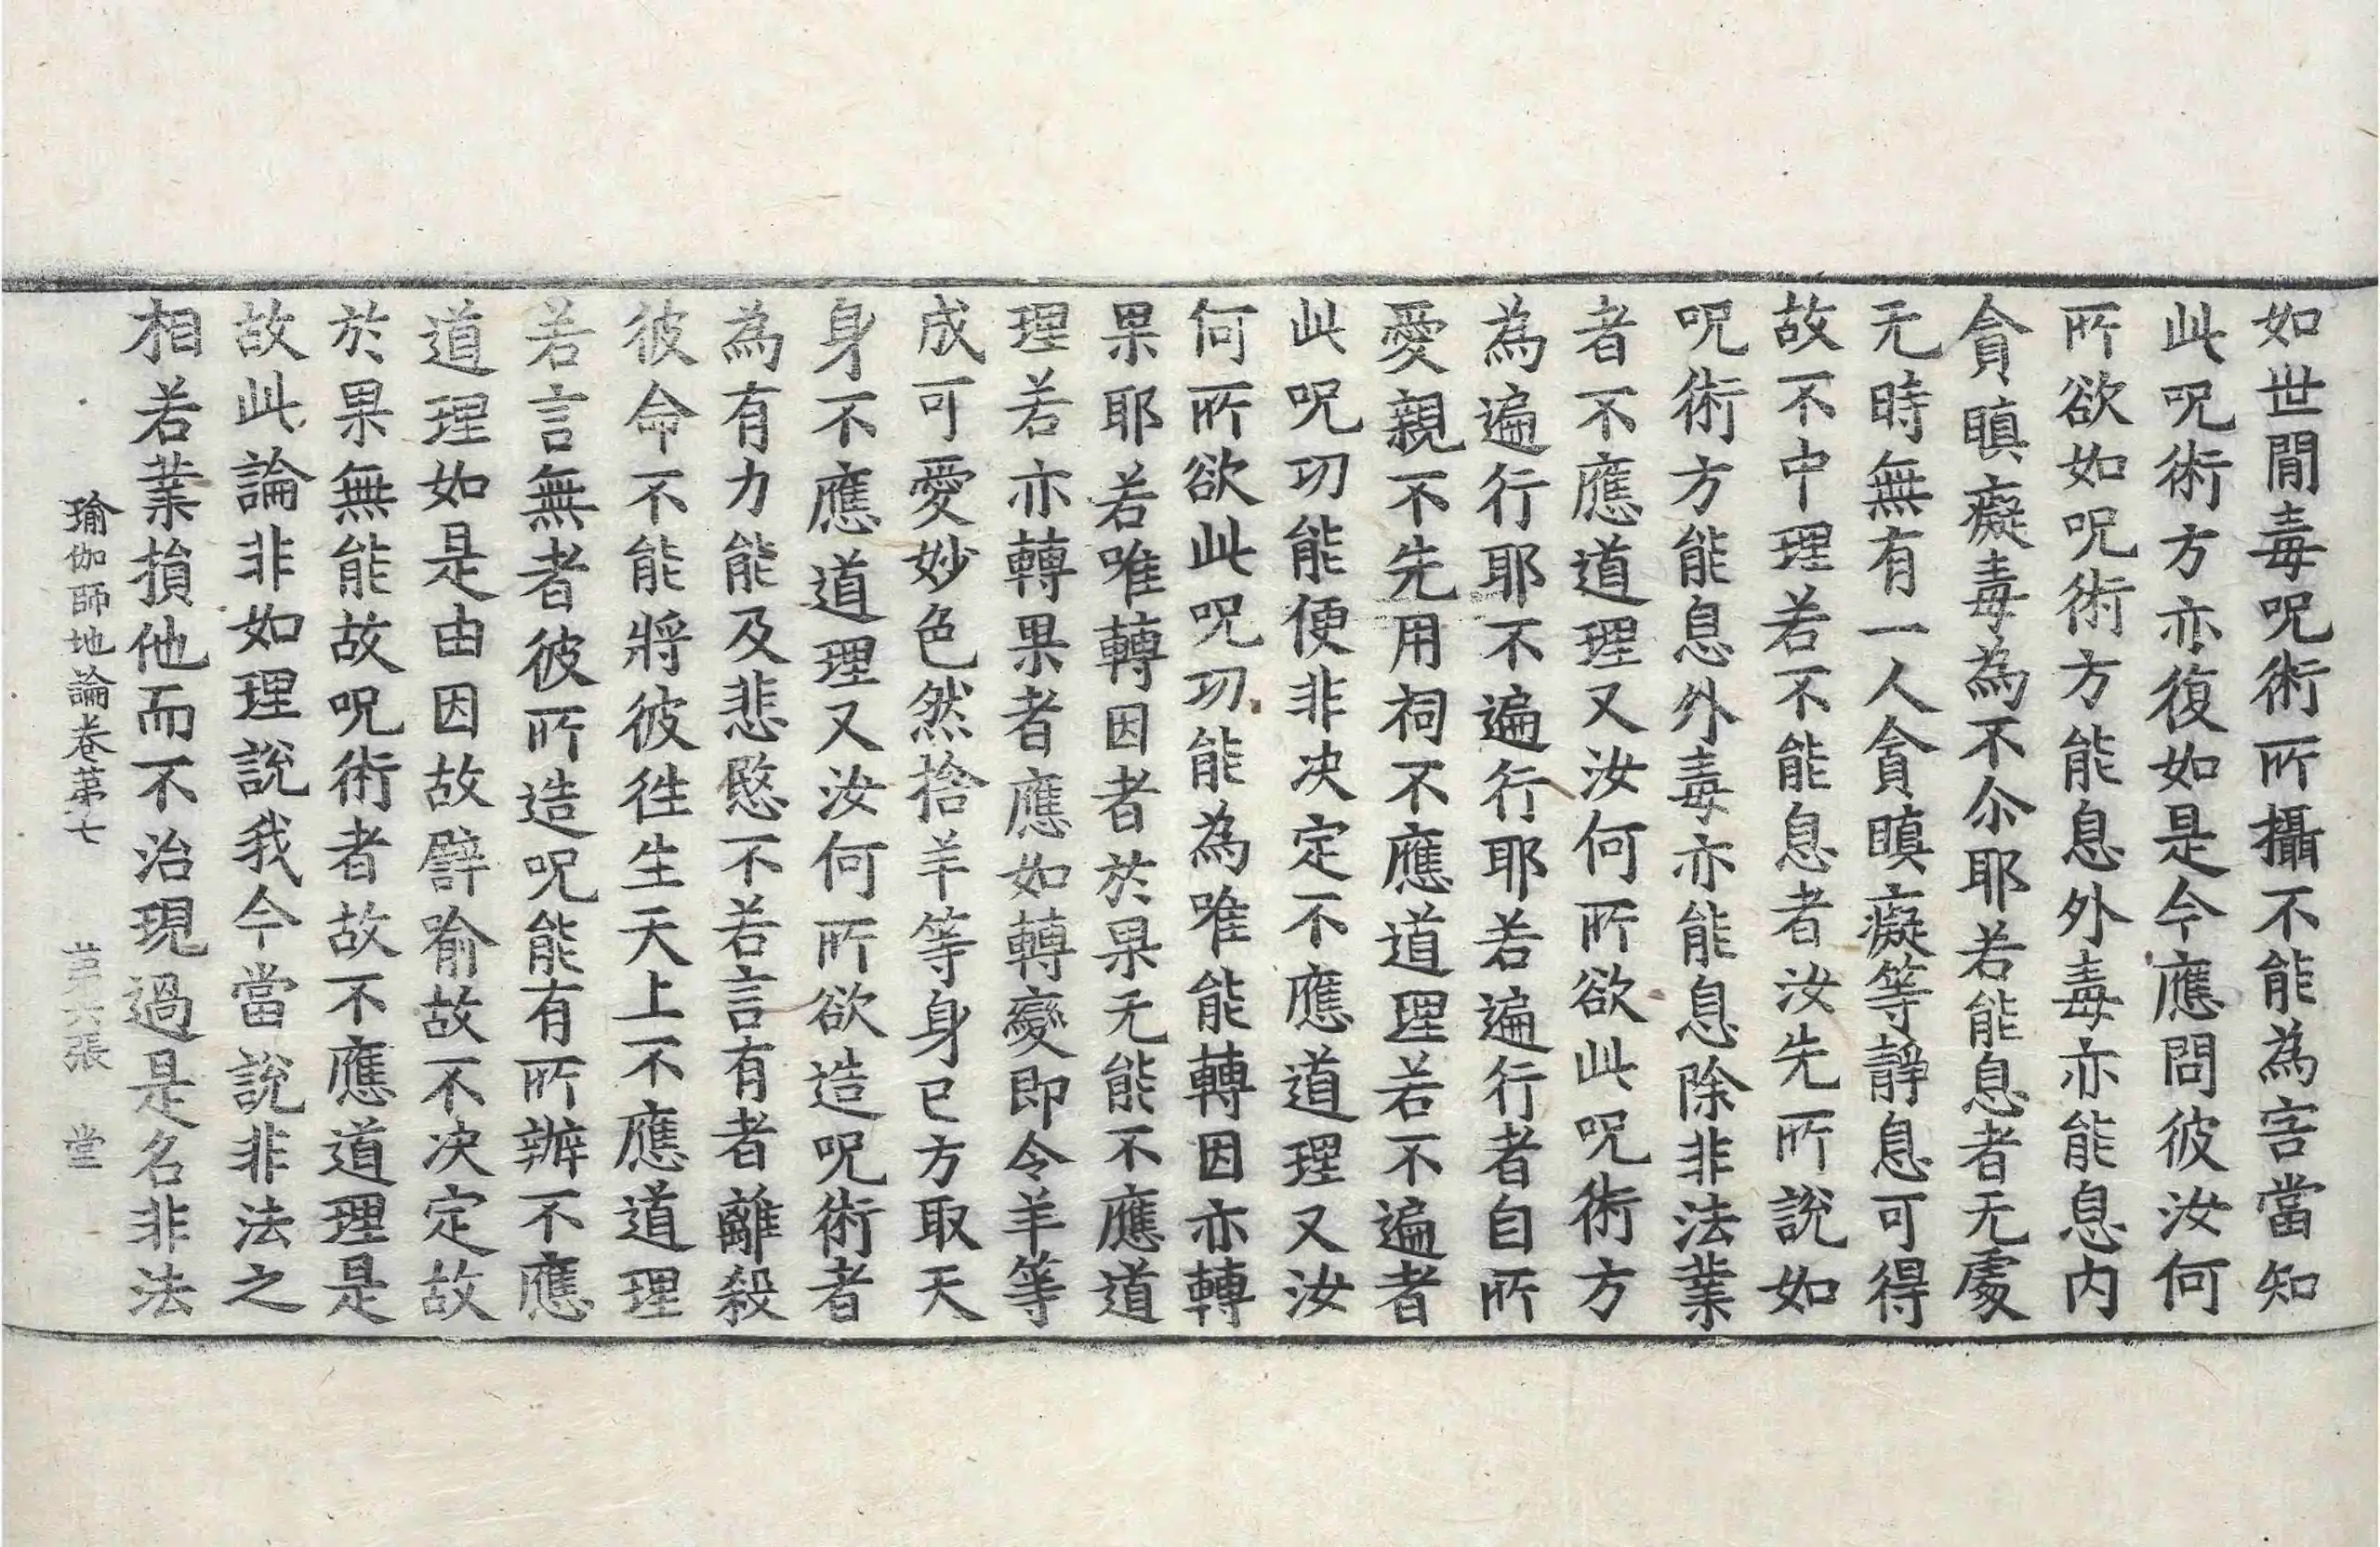 如世間毒呪術所攝不能為害當知
此呪術方亦復如是今應問彼汝何
所欲如呪術方能息外毒亦能息内
貪瞋癡毒為不尒耶若能息者无處
无時無有一人貪瞋癡等靜息可得
故不中理若不能息者汝先所說如
呪術方能息外毒亦能息除非法業
者不應道理又汝何所欲此呪術方
為遍行耶不遍行耶若遍行者自所
愛親不先用祠不應道理若不遍者
此呪功能便非決定不應道理又汝
何所欲此呪功能為唯能轉因亦轉
果耶若唯轉因者於果无能不應道
理若亦轉果者應如轉變即令羊等
成可愛妙色然捨羊等身已方取天
身不應道理又汝何所欲造呪術者
為有力能及悲愍不若言有者離殺
彼命不能將彼往生天上不應道理
若言無者彼所造呪能有所辦不應
道理如是由因故譬喻故不决定故
於果無能故呪術者故不應道理是
故此論非如理說我今當說非法之
相若業損他而不治現過是名非法
瑜伽師地論卷第七 第六張 堂